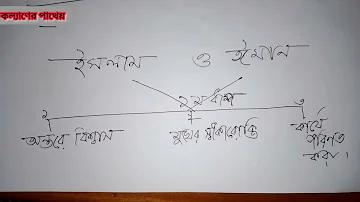 কল্যাণের পাথেয়
ইসলাম ও ঈমান
১ ২ ৩
অন্তরে বিশ্বাস
মুখের স্বীকারোক্তি
কার্যে
পরিণত
করা।